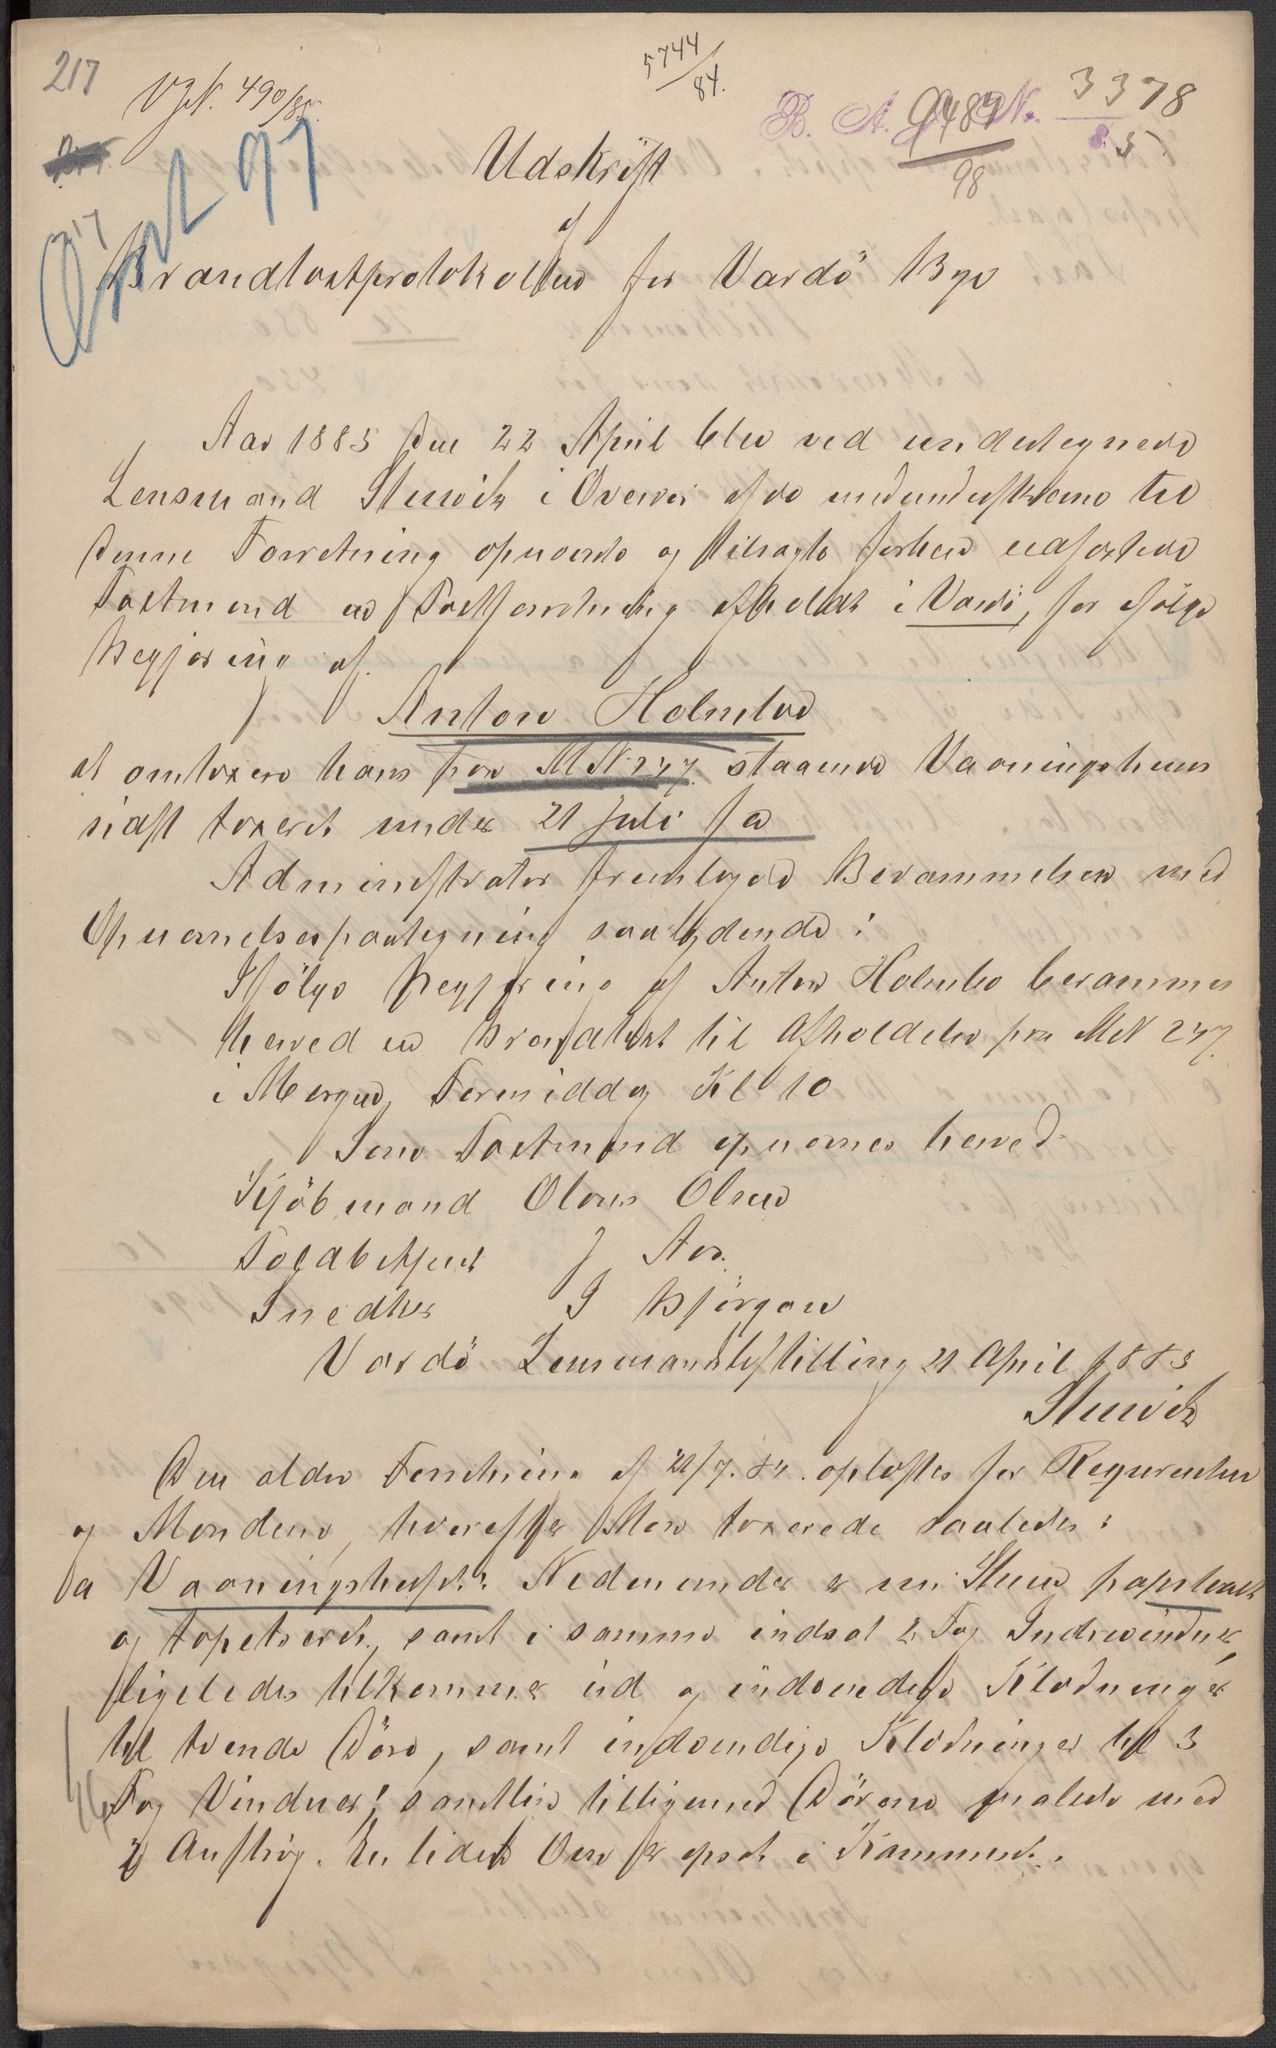 217
5744/84.
VJN. 490/85.
B. A. J. No. 3378
8 5.
9487
98
Udskrift
af
Brandtaxtprotokollen for Vardö By
Aar 1885 den 22 April blev ved undertegnede
Lensmand Stuwitz i Overvær af de nedenunderskrevne til
denne Forretning opnævnte og tilsagte forhen edfæstede
Taxtmænd en Taxtforretning afholdt i Vardö, for ifölge
Begjæring af
Anton Holmboe
at omtaxere hans paa M N 247 staaende Vaaningshuus
sidst taxeret under 21 Juli f a
Administrator fremlagde Berammelsen med
Opnævnelsespaategning saalydende:
Ifölge Begjæring af Anton Holmbo berammes
herved en Brandtaxt til Afholdelse paa MN 247
i Morgen Formiddag Kl 10
Som Taxtmænd opnævnes herved
Kjöbmand Olaus Olsen
Toldbetjent J Aas.
Snedker I Björgan
Vardö Lensmandsbestilling 21 April 1885
Stuwitz
Den ældre Forretning af 21/7. 84. oplæstes for Requirenten
og Mændene, hvorefter Man taxerede saaledes:
a Vaaningshuset: Nedenunder er en Stue panelt
og tapetseret, samt i samme indsat 2 Fag Indrevinduer
ligeledes tilkommer ud og indvendige Klædninger
til tvende Döre, samt indvendige Klædninger til 3
Fag Vinduer; samtlige tilligemed Dörene malede med
2 Anströg. En liden Ovn er opsat i Kammeret.